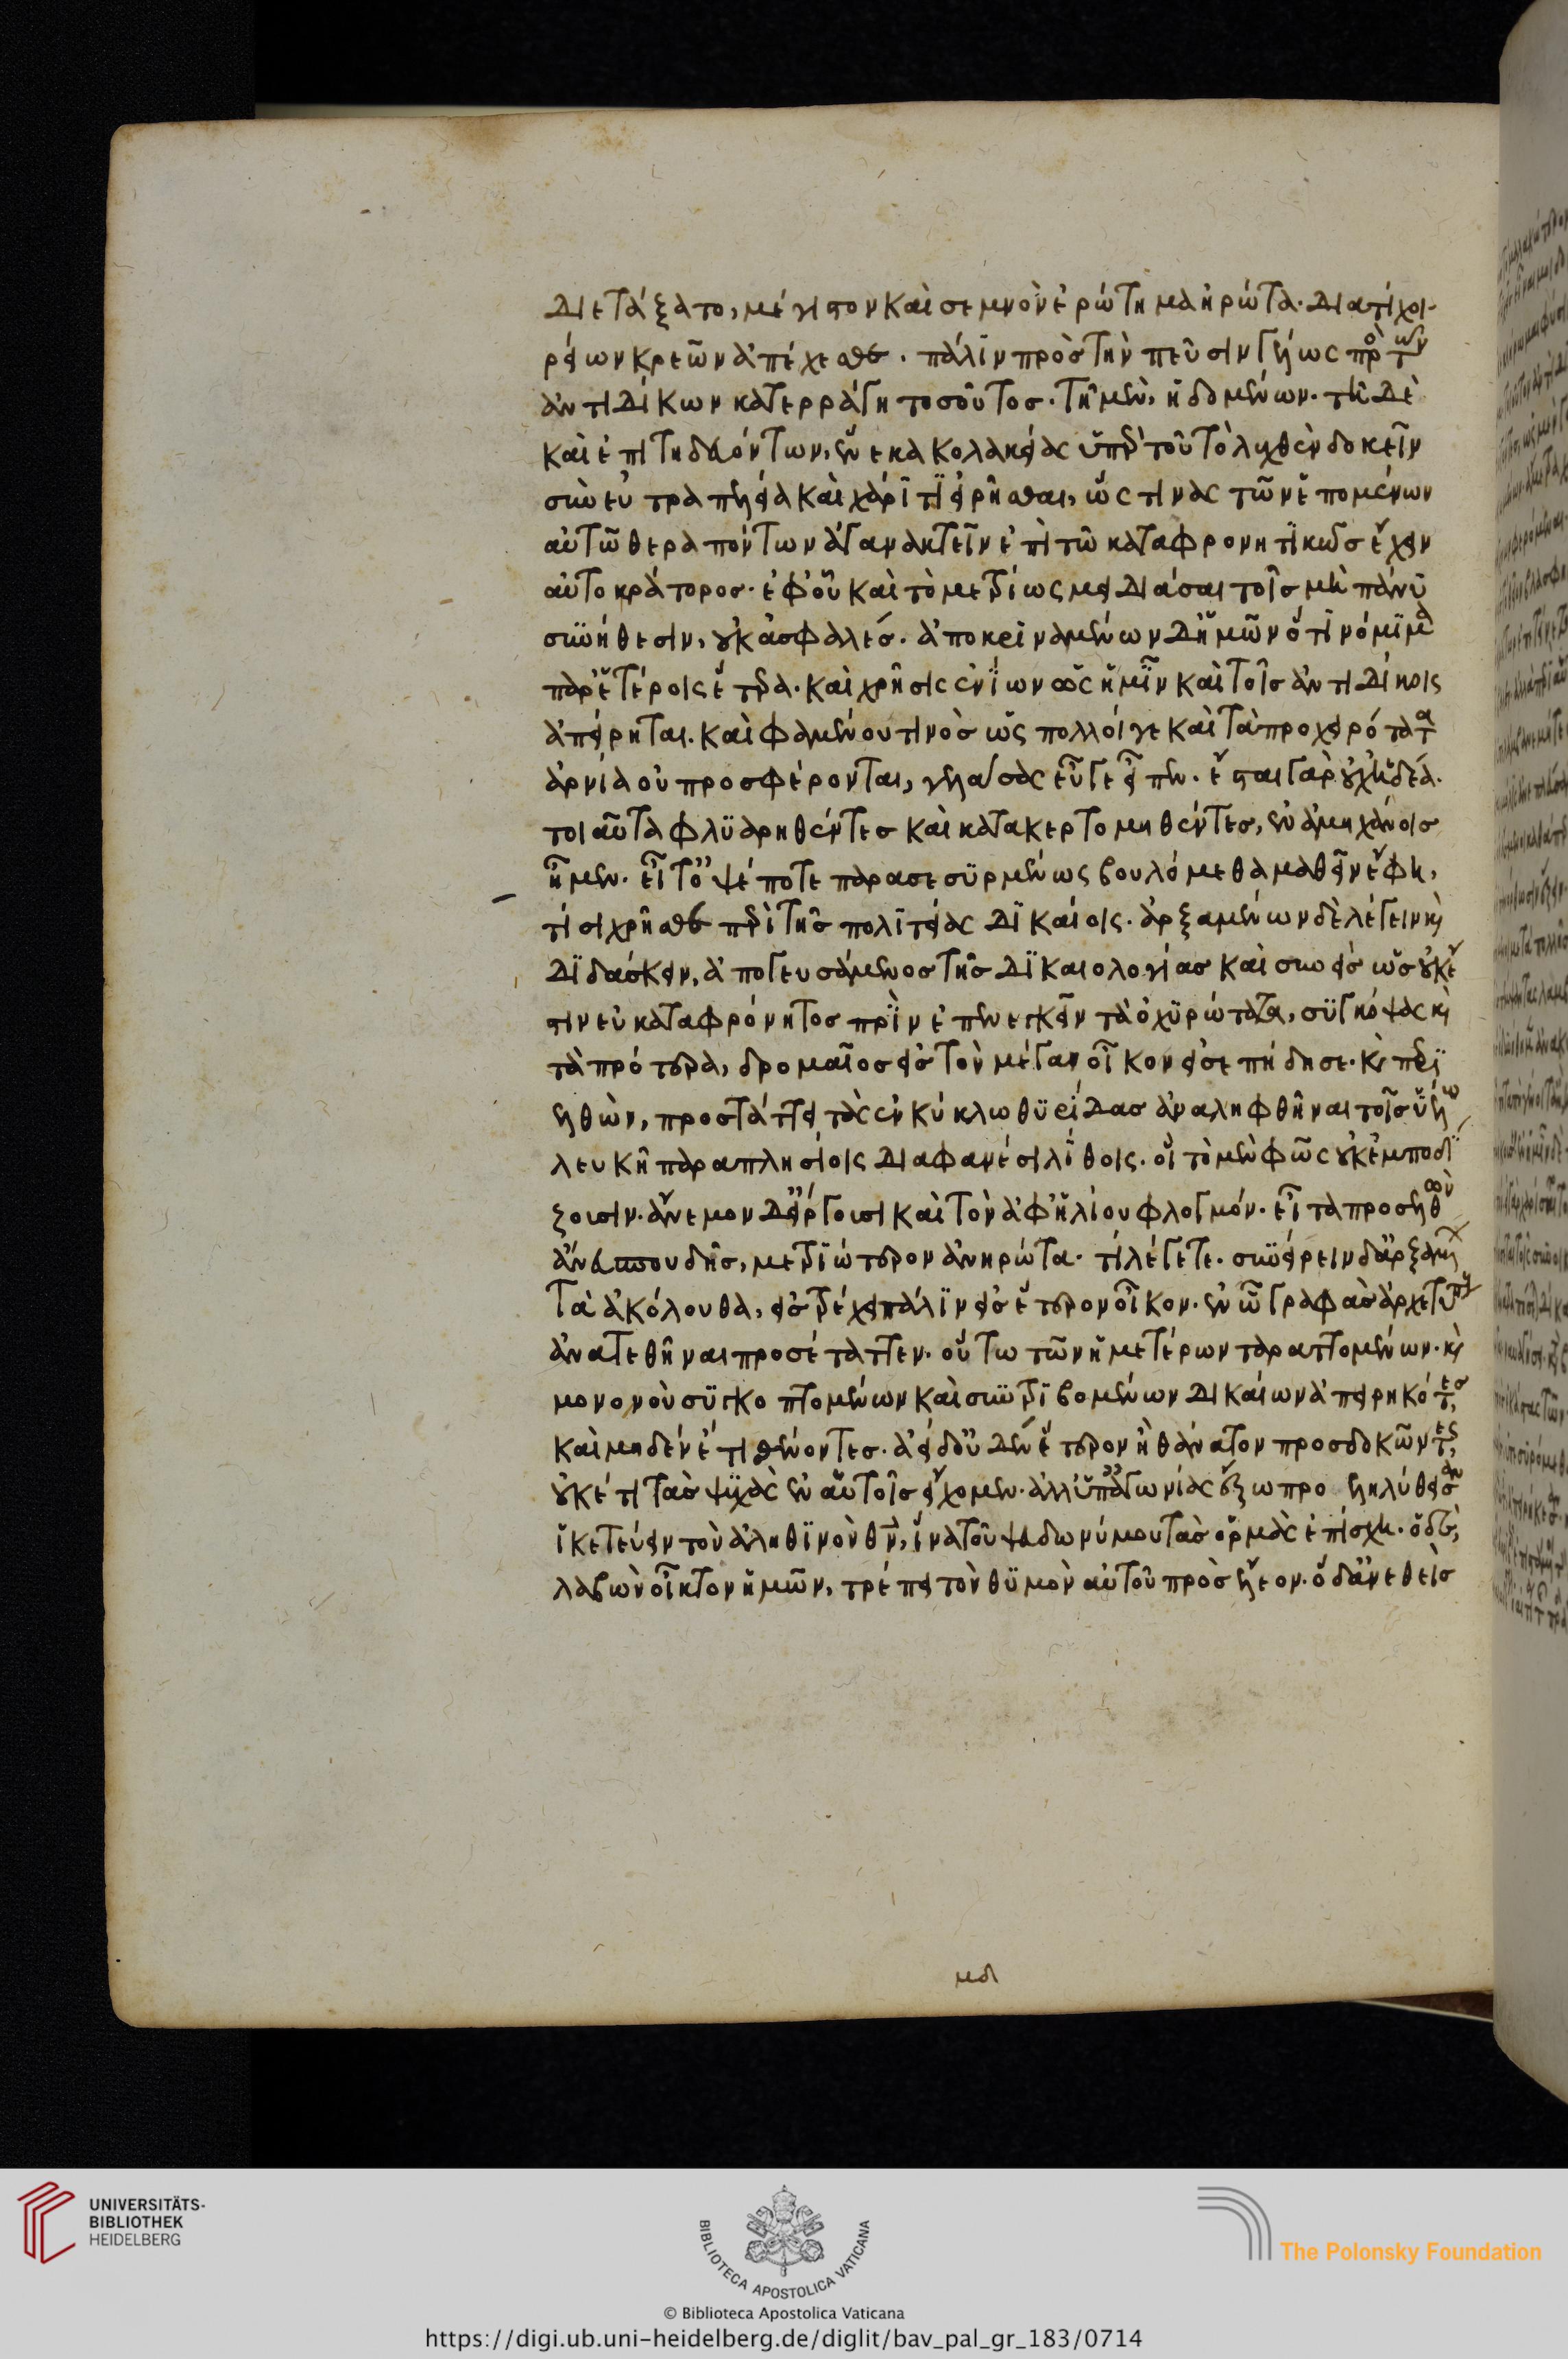 διετάξατο, μέγιστον καὶ σεμνὸν ἐρώτημα ἠρώτα· διατί χοι-
ρείων κρεῶν ἀπέχεσθε. πάλιν πρὸς τὴν πεῦσιν γέλως πρὸς τῶν
ἀντιδίκων κατερράγη τοσοῦτος. τῇ μὲν, ἡδομένων. τῇ δὲ
καὶ ἐπιτηδευόντων, ἕνεκα κολακείας ὑπὲρ τοῦ τὸ λεχθὲν δοκεῖν
σὺν εὐτραπελείᾳ καὶ χάριτι εἰρῆσθαι, ὥς τινας τῶν ἑπομένων
αὐτῷ θεραπόντων ἀγανακτεῖν ἐπὶ τῷ καταφρονητικῶς ἔχειν
αὐτοκράτορος· ἐφ' οὗ καὶ τὸ μετρίως μειδιάσαι τοῖς μὴ πάνυ
συνήθεσιν, οὐκ ἀσφαλές. ἀποκριναμένων δ' ἡμῶν ὅτι νόμιμα
παρ' ἑτέροις ἕτερα. καὶ χρῆσις ἐνίων ὡς ἡμῖν καὶ τοῖς ἀντιδίκοις
ἀπείρηται. καὶ φαμένου τινὸς ὡς πολλοί γε καὶ τὰ προχειρότατα
ἀρνία οὐ προσφέρονται, γελάσας εὖγε εἶπεν. ἔσται γὰρ οὐχ ἡδέα.
τοιαῦτα φλυαρηθέντες καὶ κατακερτομηθέντες, ἐν ἀμηχάνοις
ἦμεν. εἶτ' ὀψέ ποτε παρασεσυρμένως βουλόμεθα μαθεῖν ἔφη,
τίσι χρῆσθε περὶ τῆς πολιτείας δικαίοις. ἀρξαμένων δὲ λέγειν καὶ
διδάσκειν, ἀπογευσάμενος τῆς δικαιολογίας καὶ συνεὶς ὡς οὐκ ἔ
στιν εὐκαταφρόνητος πρὶν ἐπενεγκεῖν τὰ ὀχυρώτατα, συγκόψας καὶ
τὰ πρότερα, δρομαῖος εἰς τὸν μέγαν οἶκον εἰσεπήδησε. καὶ περι
ελθὼν, προστάττει τὰς ἐν κύκλῳ θυρίδας ἀναληφθῆναι τοῖς ὑέλῳ
λευκῇ παραπλησίοις διαφανέσι λίθοις. οἳ τὸ μὲν φῶς οὐκ ἐμποδί
ζουσιν. ἄνεμον δ' εἴργουσι καὶ τὸν ἀφ' ἡλίου φλογμόν. εἶτα προσελθὼν
ἄνευ σπουδῆς, μετριώτερον ἀνηρώτα. τί λέγετε. συνείρειν δ' ἀρξαμένων
τὰ ἀκόλουθα, εἰστρέχει πάλιν εἰς ἕτερον οἶκον. ἐν ᾧ γραφὰς ἀρχετύπους
ἀνατεθῆναι προσέταττεν. οὕτω τῶν ἡμετέρων ταραττομένων. καὶ
μονονοὺ συγκοπτομένων καὶ συντριβομένων δικαίων ἀπειρηκότες
καὶ μηδὲν ἔτι σθένοντες. ἀεὶ δ' οὐδὲν ἕτερον ἢ θάνατον προσδοκῶντες,
οὐκέτι τὰς ψυχὰς ἐν αὑτοῖς εἴχομεν. ἀλλ' ὑπ' ἀγωνίας ἔξω προεληλύθεσαν
ἱκετεύειν τὸν ἀληθινὸν θν, ἵνα τοῦ ψευδωνύμου τὰς ὁρμὰς ἐπίσχῃ. ὁ δὲ,
λαβὼν οἶκτον ἡμῶν, τρέπει τὸν θυμὸν αὐτοῦ πρὸς ἔλεον. ὁ δ' ἀνεθεὶς
μδ
UNIVERSITÄTS-
BIBLIOTHEK
HEIDELBERG
BIBLIOTECA APOSTOLICA VATICANA
The Polonsky Foundation
© Biblioteca Apostolica Vaticana
https://digi.ub.uni-heidelberg.de/diglit/bav_pal_gr_183/0714